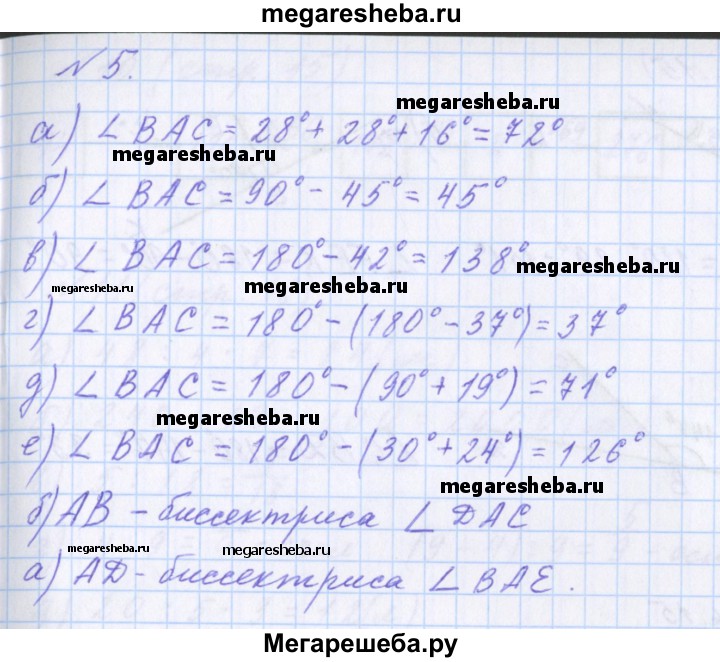 megaresheba.ru
№5.
megaresheba.ru
а) ∠BAC = 28° + 28° + 16° = 72°
megaresheba.ru
б) ∠BAC = 90° - 45° = 45°
в) ∠BAC = 180° - 42° = 138°
megaresheba.ru
megaresheba.ru
megaresheba.ru
г) ∠BAC = 180° - (180° - 37°) = 37°
д) ∠BAC = 180° - (90° + 19°) = 71°
megaresheba.ru
е) ∠BAC = 180° - (30° + 24°) = 126°
megaresheba.ru
б) АВ - биссектриса ∠DAC
megaresheba.ru
megaresheba.ru
а) АД - биссектриса ∠BAE.
Мегарешеба.ру